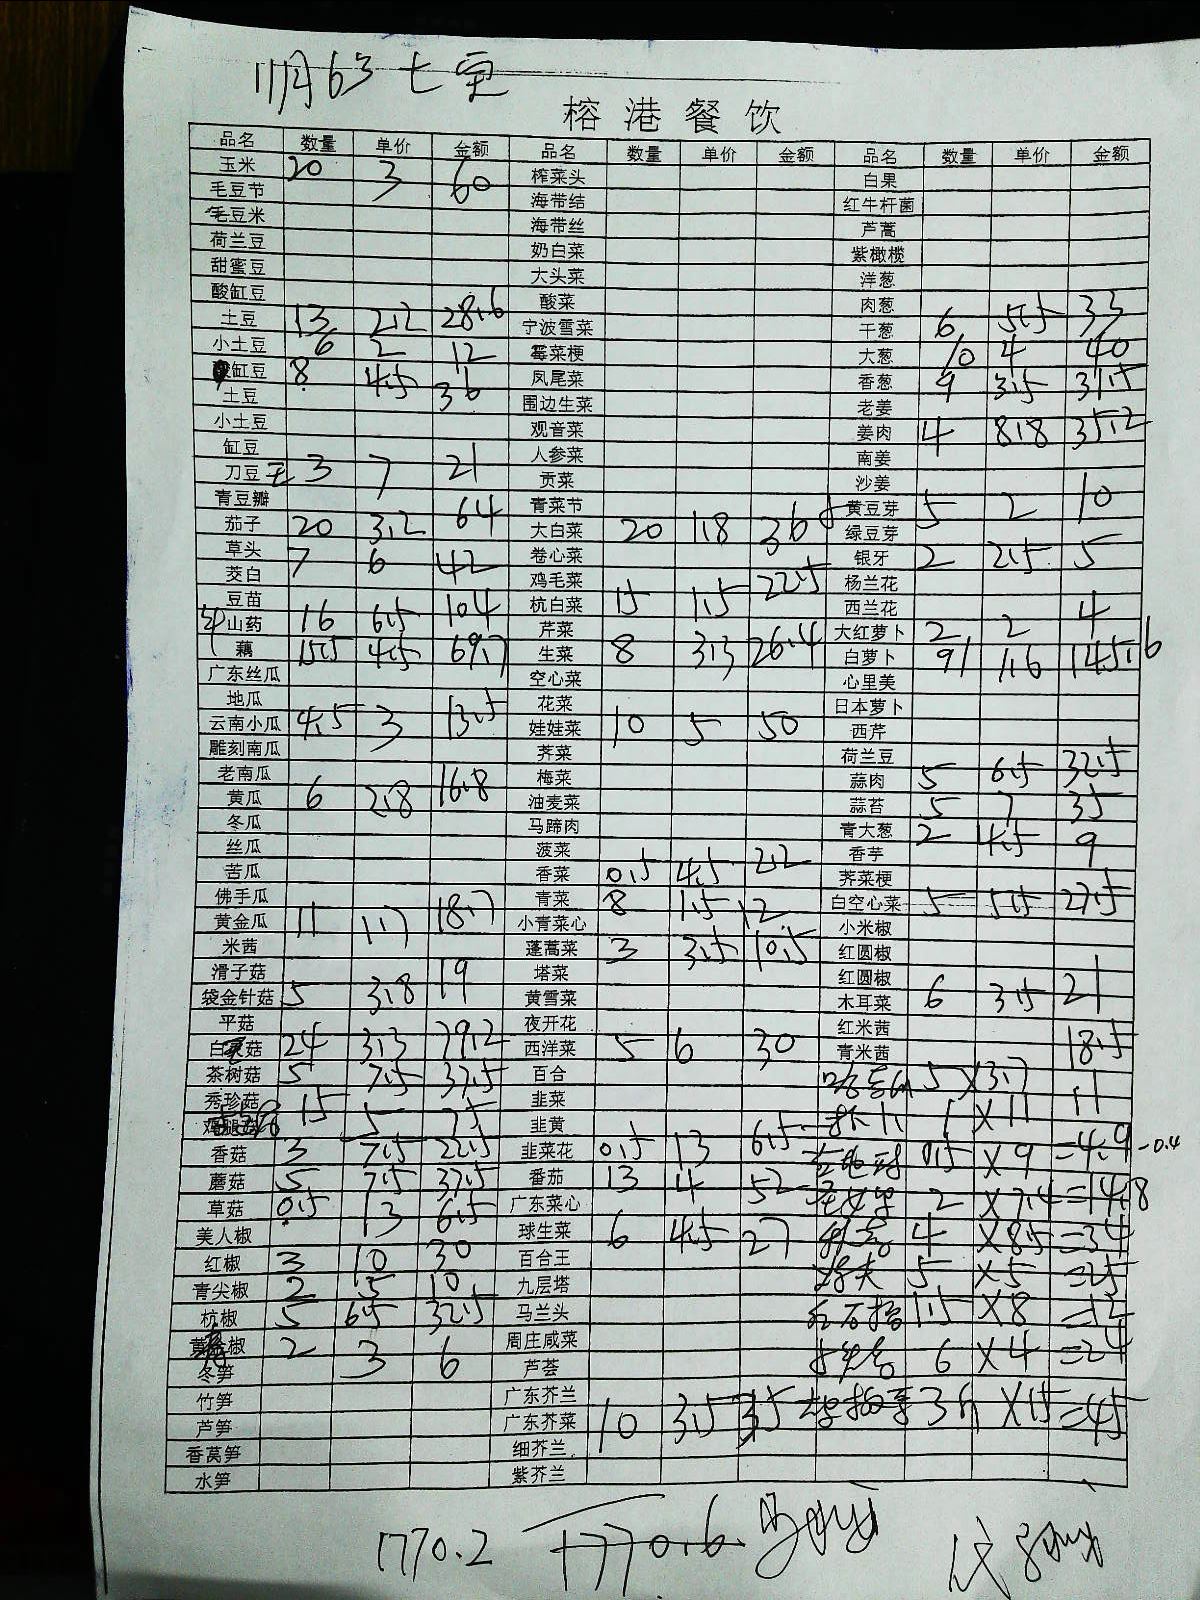 11月6号 七
榕港餐饮
品名 数量 单价 金额 品名 数量 单价 金额 品名 数量 单价 金额
玉米 20 3 60 榨菜头 白果
毛豆节 海带结 红牛杆菌
毛豆米 海带丝 芦蒿
荷兰豆 奶白菜 紫橄榄
甜蜜豆 大头菜 洋葱
酸缸豆 酸菜 肉葱
土豆 13 2.2 28.6 宁波雪菜 干葱 6 5.5 33
小土豆 6 2 12 霉菜梗 大葱 10 4 40
缸豆 8 4.5 36 凤尾菜 香葱 9 3.5 31.5
土豆 围边生菜 老姜
小土豆 观音菜 姜肉 4 8.8 35.2
缸豆 人参菜 南姜
刀豆 3 7 21 贡菜 沙姜
青豆瓣 青菜节 黄豆芽 5 2 10
茄子 20 3.2 64 大白菜 20 1.8 36 绿豆芽
草头 7 6 42 卷心菜 银牙 2 2.5 5
茭白 鸡毛菜 杨兰花
豆苗 杭白菜 15 1.5 22.5 西兰花
山药 16 6.5 104 芹菜 大红萝卜 2 2 4
藕 15.5 4.5 69.7 生菜 8 3.3 26.4 白萝卜 91 1.6 145.6
广东丝瓜 空心菜 心里美
地瓜 花菜 日本萝卜
云南小瓜 4.5 3 13.5 娃娃菜 10 5 50 西芹
雕刻南瓜 荠菜 荷兰豆
老南瓜 梅菜 蒜肉 5 6.5 32.5
黄瓜 6 2.8 16.8 油麦菜 蒜苔 5 7 35
冬瓜 马蹄肉 青大葱 2 4.5 9
丝瓜 菠菜 香芋
苦瓜 香菜 0.5 4.5 2.2 荠菜梗
佛手瓜 青菜 8 1.5 12 白空心菜 5 5.5 27.5
黄金瓜 11 1.7 18.7 小青菜心 小米椒
米茜 蓬蒿菜 3 3.5 10.5 红圆椒
滑子菇 塔菜 红圆椒
袋金针菇 5 3.8 19 黄雪菜 木耳菜 6 3.5 21
平菇 夜开花 红米茜
白菇 24 3.3 79.2 西洋菜 5 6 30 青米茜
茶树菇 5 7.5 37.5 百合 5 ×3.7 18.5
秀珍菇 韭菜 1 ×11 11
15 5 75 韭黄
香菇 3 7.5 22.5 韭菜花 0.5 13 6.5 0.5 ×9 =4.9 -0.4
蘑菇 5 7.5 37.5 番茄 13 4 52 2 ×7.4 =14.8
草菇 0.5 13 6.5 广东菜心 4 ×8.5 =34
美人椒 球生菜 6 4.5 27 5 ×5 =25
红椒 3 10 30 百合王 1.5 ×8 =12
青尖椒 2 5 10 九层塔 6 ×4 =24
杭椒 5 6.5 32.5 马兰头
椒 2 3 6 周庄咸菜
冬笋 芦荟
竹笋 广东芥兰
芦笋 广东芥菜 10 3.5 35 ×15 =45
香莴笋 细芥兰
水笋 紫芥兰
1770.2 1770.6